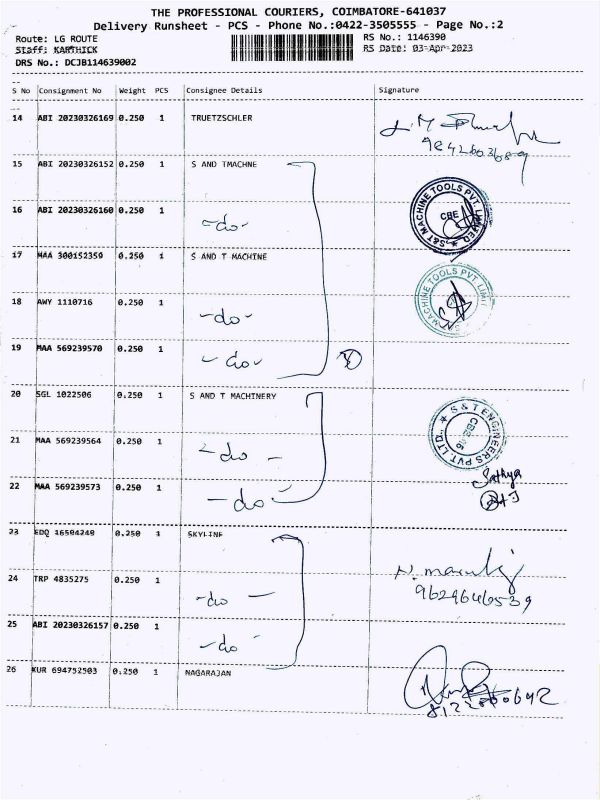 THE PROFESSIONAL COURIERS, COIMBATORE-641037
Delivery Runsheet - PCS - Phone No.:0422-3505555 - Page No.:2
Route: LG ROUTE
RS No.: 1146390
Staff: KARTHICK
RS Date: 03-Apr-2023
DRS No.: DCJB114639002
S No Consignment No Weight PCS Consignee Details Signature
14 ABI 20230326169 0.250 1 TRUETZSCHLER
15 ABI 20230326152 0.250 1 S AND TMACHNE
16 ABI 20230326160 0.250 1 -do-
S&T MACHINE TOOLS PVT. LIMITED
CBE
17 MAA 300152359 0.250 1 S AND T MACHINE
18 AWY 1110716 0.250 1 -do-
MACHINE TOOLS PVT. LIMIT
19 MAA 569239570 0.250 1 -do-
20 SGL 1022506 0.250 1 S AND T MACHINERY
21 MAA 569239564 0.250 1 -do-
S & T ENGINEERS PVT. LTD.
22 MAA 569239573 0.250 1 -do-
Sathya
23 EDQ 16504240 0.250 1 SKYLINE
24 TRP 4835275 0.250 1 -do-
9629646539
25 ABI 20230326157 0.250 1 -do-
26 KUR 694752503 0.250 1 NAGARAJAN